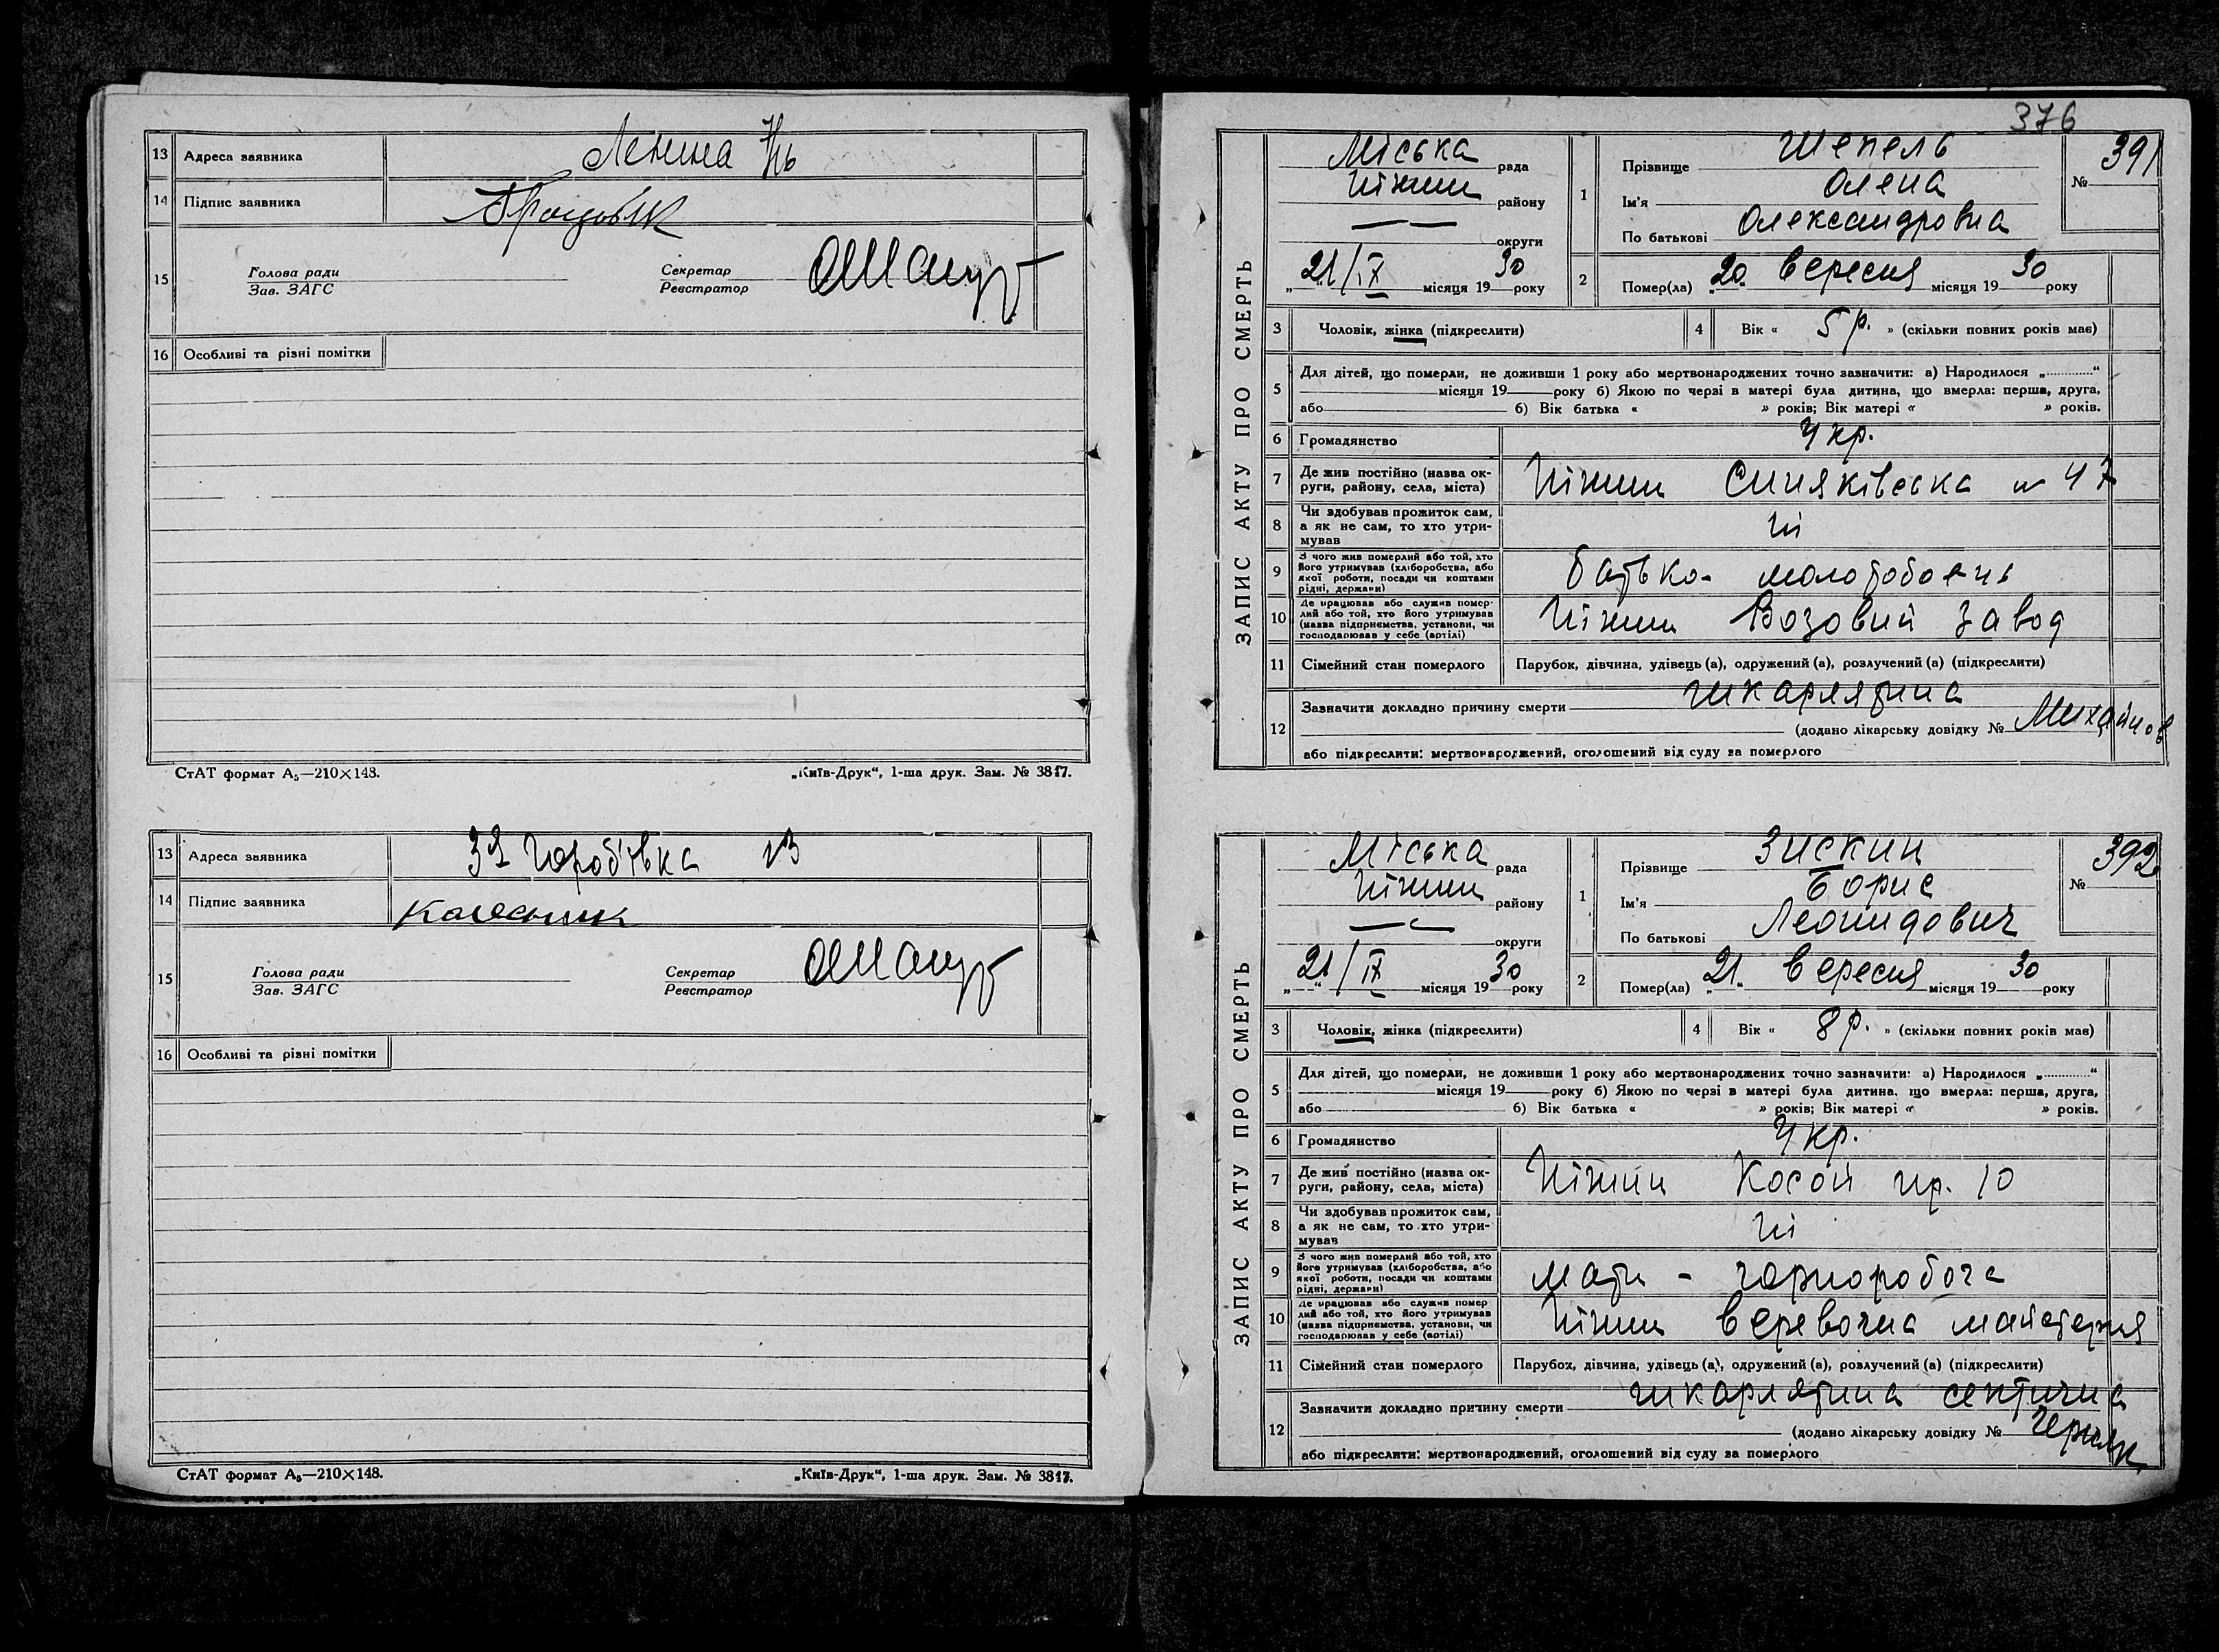 13 Адреса заявника Леніна
14 Підпис заявника
15 Голова ради
Зав. ЗАГС
Секретар
Реєстратор
16 Особливі та різні помітки
СтАТ формат А₅—210×148. „Київ-Друк“, 1-ша друк. Зам. № 3817.
13 Адреса заявника
14 Підпис заявника
15 Голова ради
Зав. ЗАГС
Секретар
Реєстратор
16 Особливі та різні помітки
СтАТ формат А₅—210×148. „Київ-Друк“, 1-ша друк. Зам. № 3817.
376
ЗАПИС АКТУ ПРО СМЕРТЬ
Міська рада
Ніжин району
— — округи
„21/IX“ місяця 1930 року
1 Прізвище Шепель
Ім'я Олена
По батькові Олександровна
№ 391
2 Помер(ла) „20“ вересня місяця 1930 року
3 Чоловік, жінка (підкреслити)
4 Вік « 5 р. » (скільки повних років має)
5 Для дітей, що померли, не доживши 1 року або мертвонароджених точно зазначити: а) Народилося „..........“
місяця 19 року б) Якою по черзі в матері була дитина, що вмерла: перша, друга,
або б) Вік батька « » років; Вік матері « » років.
6 Громадянство Укр.
7 Де жив постійно (назва ок-
руги, району, села, міста) Ніжин Синяківська № 47
8 Чи здобував прожиток сам,
а як не сам, то хто утри-
мував Ні
9 З чого жив померлий або той, хто
його утримував (хліборобства, або
якої роботи, посади чи коштами
рідні, держави) батько - молотобоець
10 Де працював або служив помер-
лий або той, хто його утримував
(назва підприємства, установи, чи
господарював у себе (артілі) Ніжин Возовий завод
11 Сімейний стан померлого Парубок, дівчина, удівець (а), одружений (а), розлучений (а) (підкреслити)
12 Зазначити докладно причину смерти шкарлятина
(додано лікарську довідку №
або підкреслити: мертвонароджений, оголошений від суду за померлого
ЗАПИС АКТУ ПРО СМЕРТЬ
Міська рада
Ніжин району
— — округи
„21/IX“ місяця 1930 року
1 Прізвище Зискин
Ім'я Борис
По батькові Леонидович
№ 392
2 Помер(ла) „21“ вересня місяця 1930 року
3 Чоловік, жінка (підкреслити)
4 Вік « 8 р. » (скільки повних років має)
5 Для дітей, що померли, не доживши 1 року або мертвонароджених точно зазначити: а) Народилося „..........“
місяця 19 року б) Якою по черзі в матері була дитина, що вмерла: перша, друга,
або б) Вік батька « » років; Вік матері « » років.
6 Громадянство Укр.
7 Де жив постійно (назва ок-
руги, району, села, міста) Ніжин Косой пр. 10
8 Чи здобував прожиток сам,
а як не сам, то хто утри-
мував Ні
9 З чого жив померлий або той, хто
його утримував (хліборобства, або
якої роботи, посади чи коштами
рідні, держави) мати - чорноробоча
10 Де працював або служив помер
лий або той, хто його утримував
(назва підприємства, установи, чи
господарював у себе (артілі) Ніжин веревочна майстерня
11 Сімейний стан померлого Парубок, дівчина, удівець (а), одружений (а), розлучений (а) (підкреслити)
12 Зазначити докладно причину смерти шкарлятина септична
(додано лікарську довідку №
або підкреслити: мертвонароджений, оголошений від суду за померлого